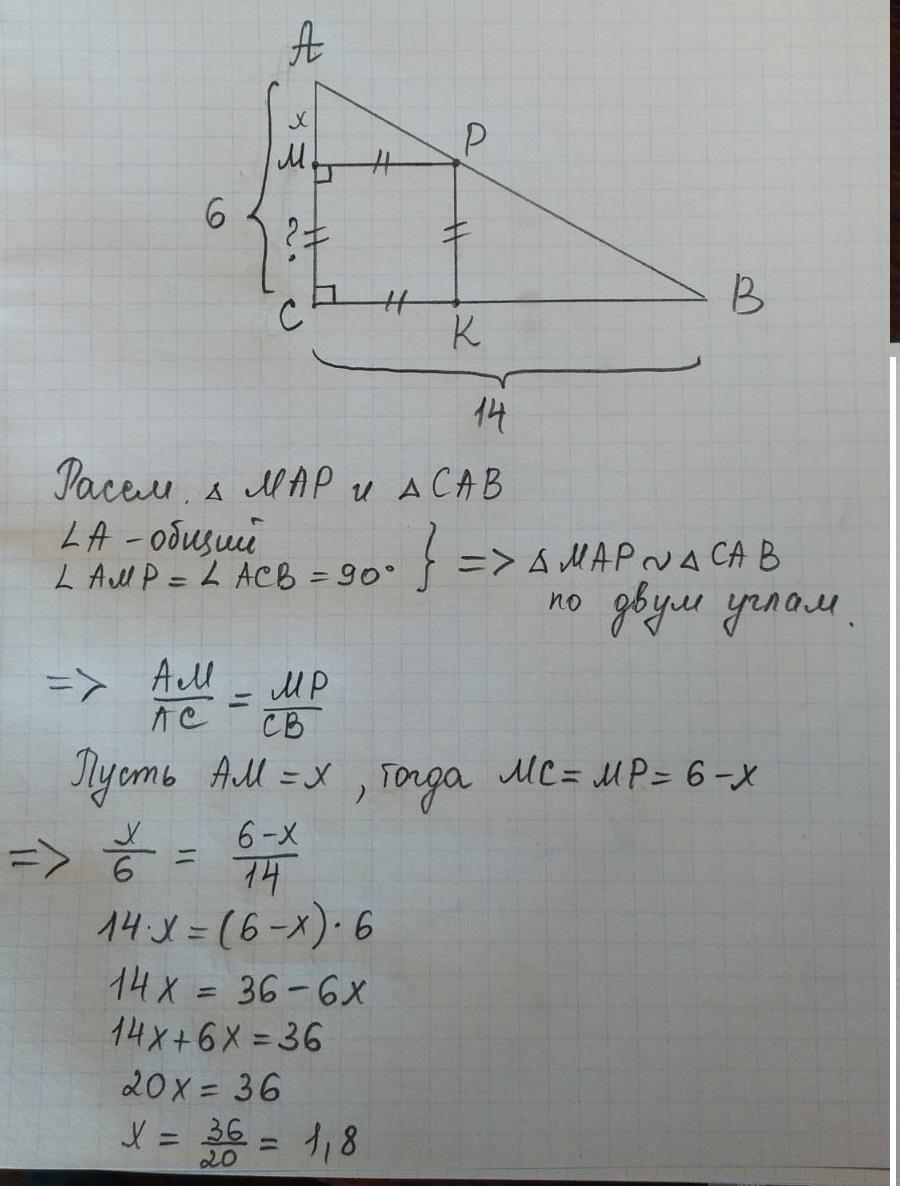 A
x
M
P
6
?
C
K
B
14
Рассм. △ MAP и △ CAB
∠A - общий
∠ AMP = ∠ ACB = 90° } => △ MAP ~ △ CAB
по двум углам.
=> AM/AC = MP/CB
Пусть AM = x, тогда MC = MP = 6 - x
=> x/6 = (6-x)/14
14·x = (6-x)·6
14x = 36 - 6x
14x + 6x = 36
20x = 36
x = 36/20 = 1,8